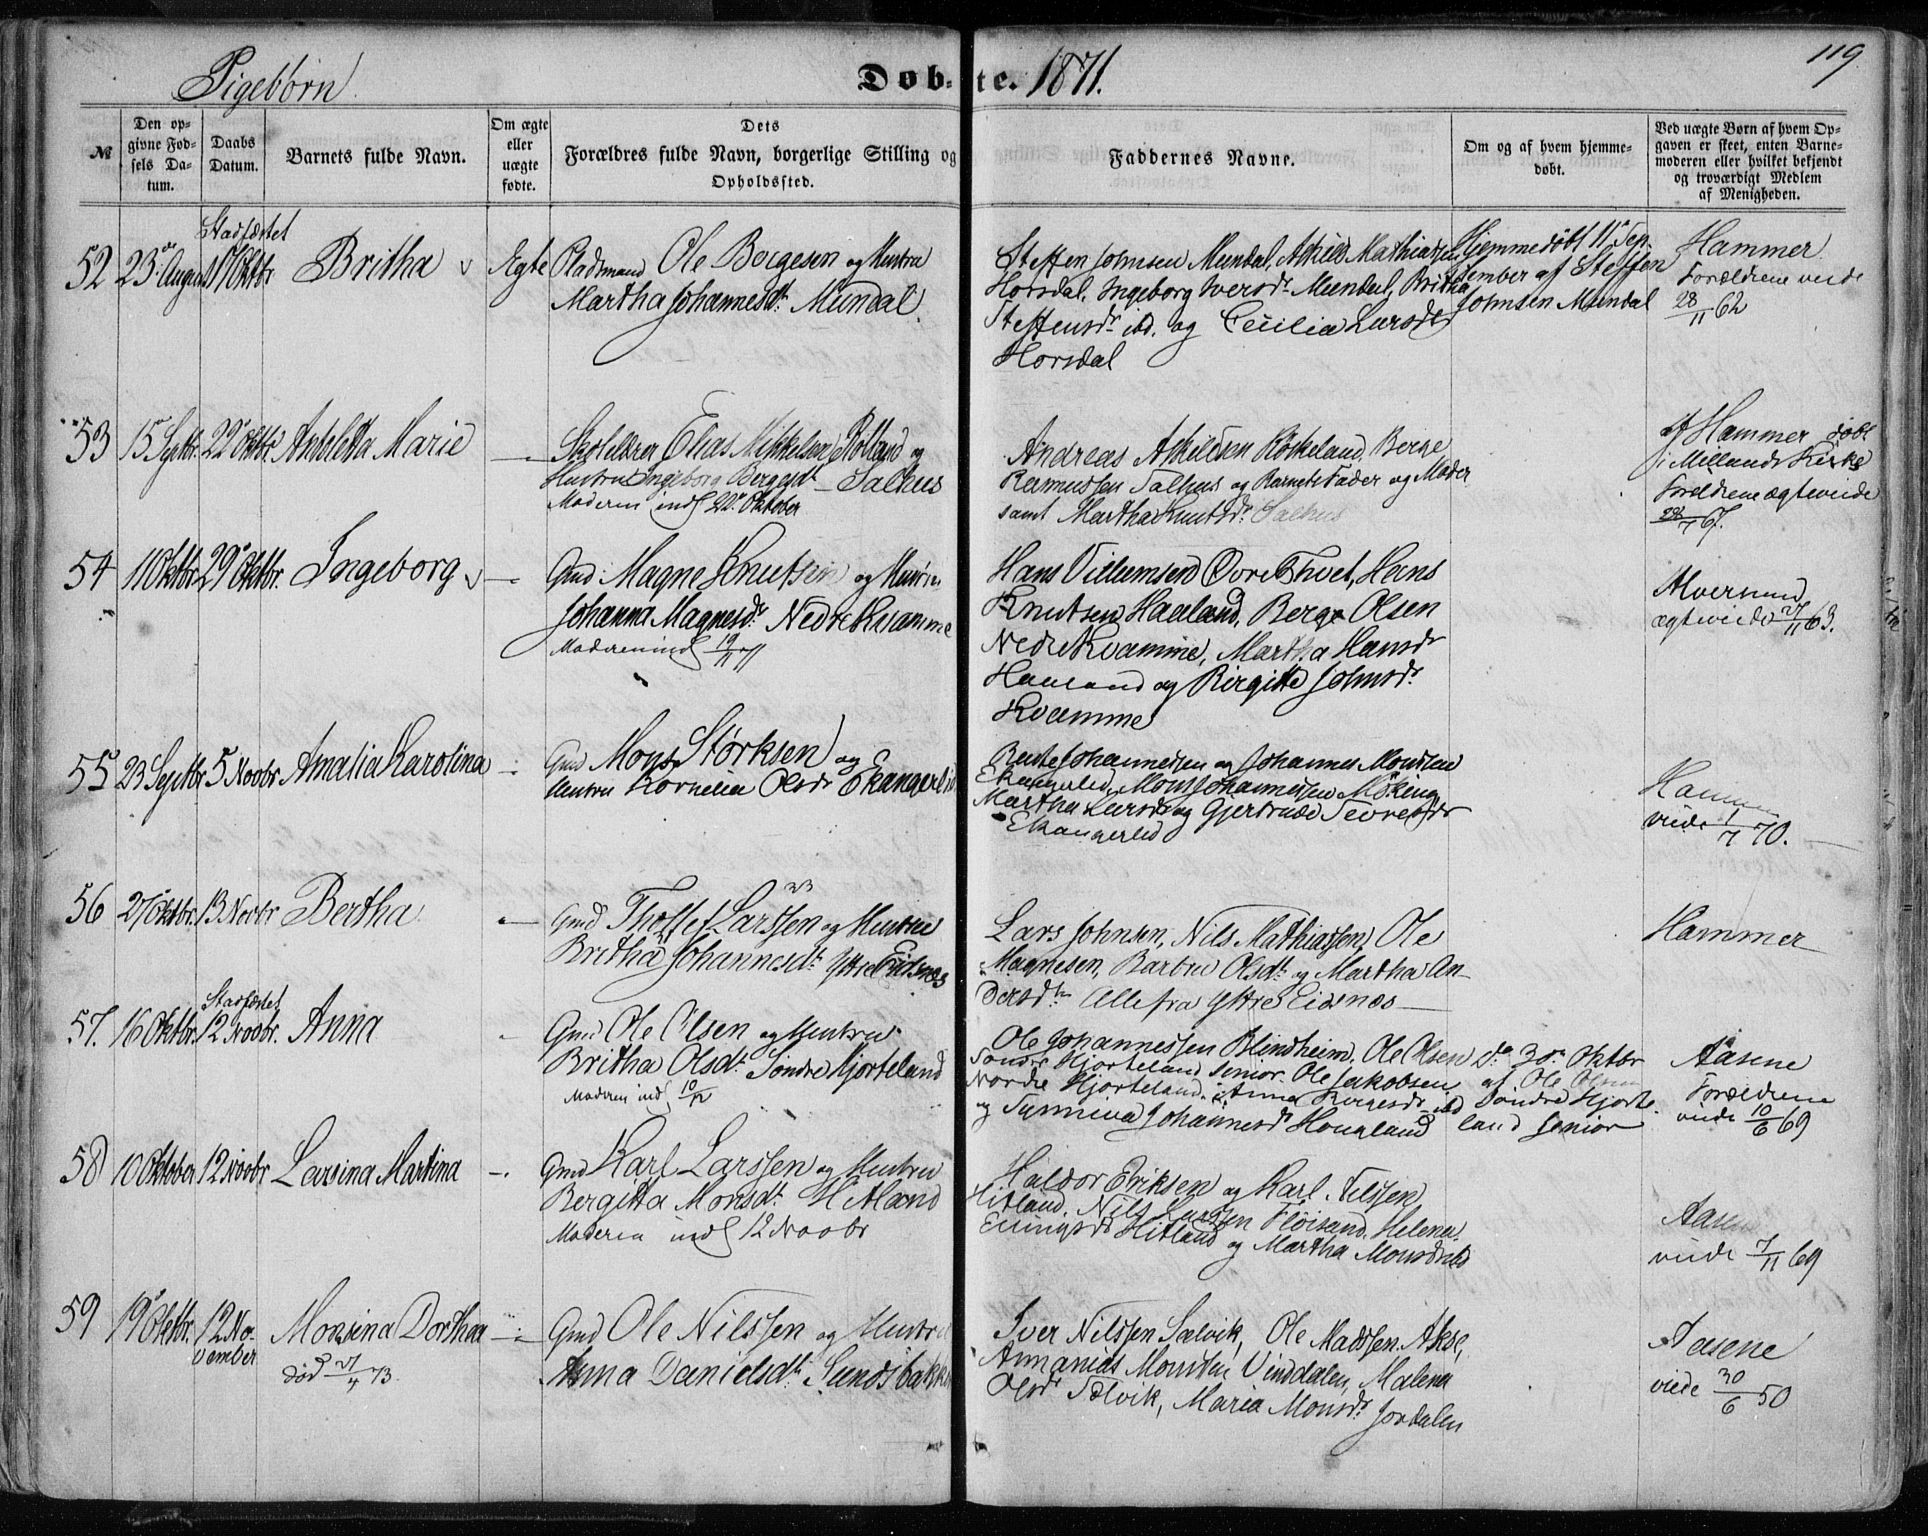 119
Pigebørn
Døbte. 1871.
№
Den op-
givne Fød-
sels Da-
tum.
Daabs
Datum.
Barnets fulde Navn.
Om ægte
eller
uægte
fødte.
Dets
Forældres fulde Navn, borgerlige Stilling og
Opholdssted.
Faddernes Navne.
Om og af hvem hjemme-
døbt.
Ved uægte Børn af hvem Op-
gaven er skeet, enten Barne-
moderen eller hvilket bekjendt
og troværdigt Medlem
af Menigheden.
Stadfæstet
52 23de August Oktbr Britha Egte Pladsmand Ole Borgesen og Hustru
Martha Johannesdr Mundal
Steffen Johnsen Mundal, Askild Mathiassen
Horsdal, Ingeborg Iversdr Mundal, Britha
Steffensdr ibd. og Cecilia Larsdr
Horsdal
Hjemmedøbt 11te Sep-
tember af Steffen
Johnsen Mundal
Hammer
Forældrene viede
28/11 62
53 15 Septbr. 22 Oktbr. Marie
Skolelærer Elias Mikkelsen Rolland og
Hustru Ingeborg Bergesdr - Salhus
Moderen indl 22. Oktober
Andreas Askildsen Röskeland, Berge
Rasmussen Salhus og Barnets Fader og Moder
samt Martha Knutsdr Salhus
af Hammer døbt
i Kirke
Forældrene ægteviede
67.
54 11 Oktbr. 29 Oktbr. Ingeborg
Gmd Magne Knutsen og Hustru
Johanna Magnesdr Nedre Kvamme
Moderen indl 19/11 71
Hans Villumsen Øvre Tvet, Hans
Knutsen Haaland, Berge Olsen
Nedre Kvamme, Martha Hansdr
Haaland og Birgitte Johnsdr
Kvamme
Alversund
ægteviede 27/11 63.
55 23 Septbr 5 Novbr Amalia Karolina
Gmd Mons Størksen og
Hustru Kornelia Olsdr Ekangerlid
Johannessen og Johannes Monsen
Ekangerlid, Mons Johannessen Möking
Martha Larsdr og Gjertrude
Ekangerlid
Hammer
viede 1/7 70.
56 27 Oktbr. 13 Novbr Bertha
Gmd Larssen og Hustru
Britha Johannesdr Ytre Eidsnes
Lars Johnsen, Nils Mathiassen, Ole
Magnesen, Barbro Olsdr og Martha An-
dersdr Alle fra Ytre Eidsnes
Hammer
Stadfæstet
57. 16 Oktbr. 12 Novbr. Anna
Gmd Ole Olsen og Hustru
Britha Olsdr Søndre Hjorteland
Moderen indl 10/12
Ole Johannessen Blindheim, Ole Olsen
Søndre Hjorteland senior, Ole Jakobsen
Nordre Hjorteland, Anna Borgesdr ibd
og Synneva Johannesdr Hougland
do 30te Oktbr
af Ole Olsen
Søndre Hjorte-
land senior
Aasene
Forældrene
viede 10/6 69
58 10 Oktober 12 Novbr Larsina Martina
Gmd Karl Larssen og Hustru
Bergitta Monsdr Hitland
Moderen indl 12 Novbr
Haldor Eriksen og Karl Nilssen
Hitland, Nils Larssen Fløisand, Helena
Hitland og Martha Monsdr ibd
Aasene
viede 7/11 69
59 19 Oktbr. 12 No-
vember
Monsina Dorthea
død 27/4 73.
Gmd Ole Nilssen og Hustru
Anna Danielsdr Sundsbakken
Iver Nilssen Sælvik, Ole Madssen Akse,
Annanias Monsen Vinddalen, Malena
Olsdr Sælvik, Maria Monsdr Jordalen
Aasene
viede 30/6 50